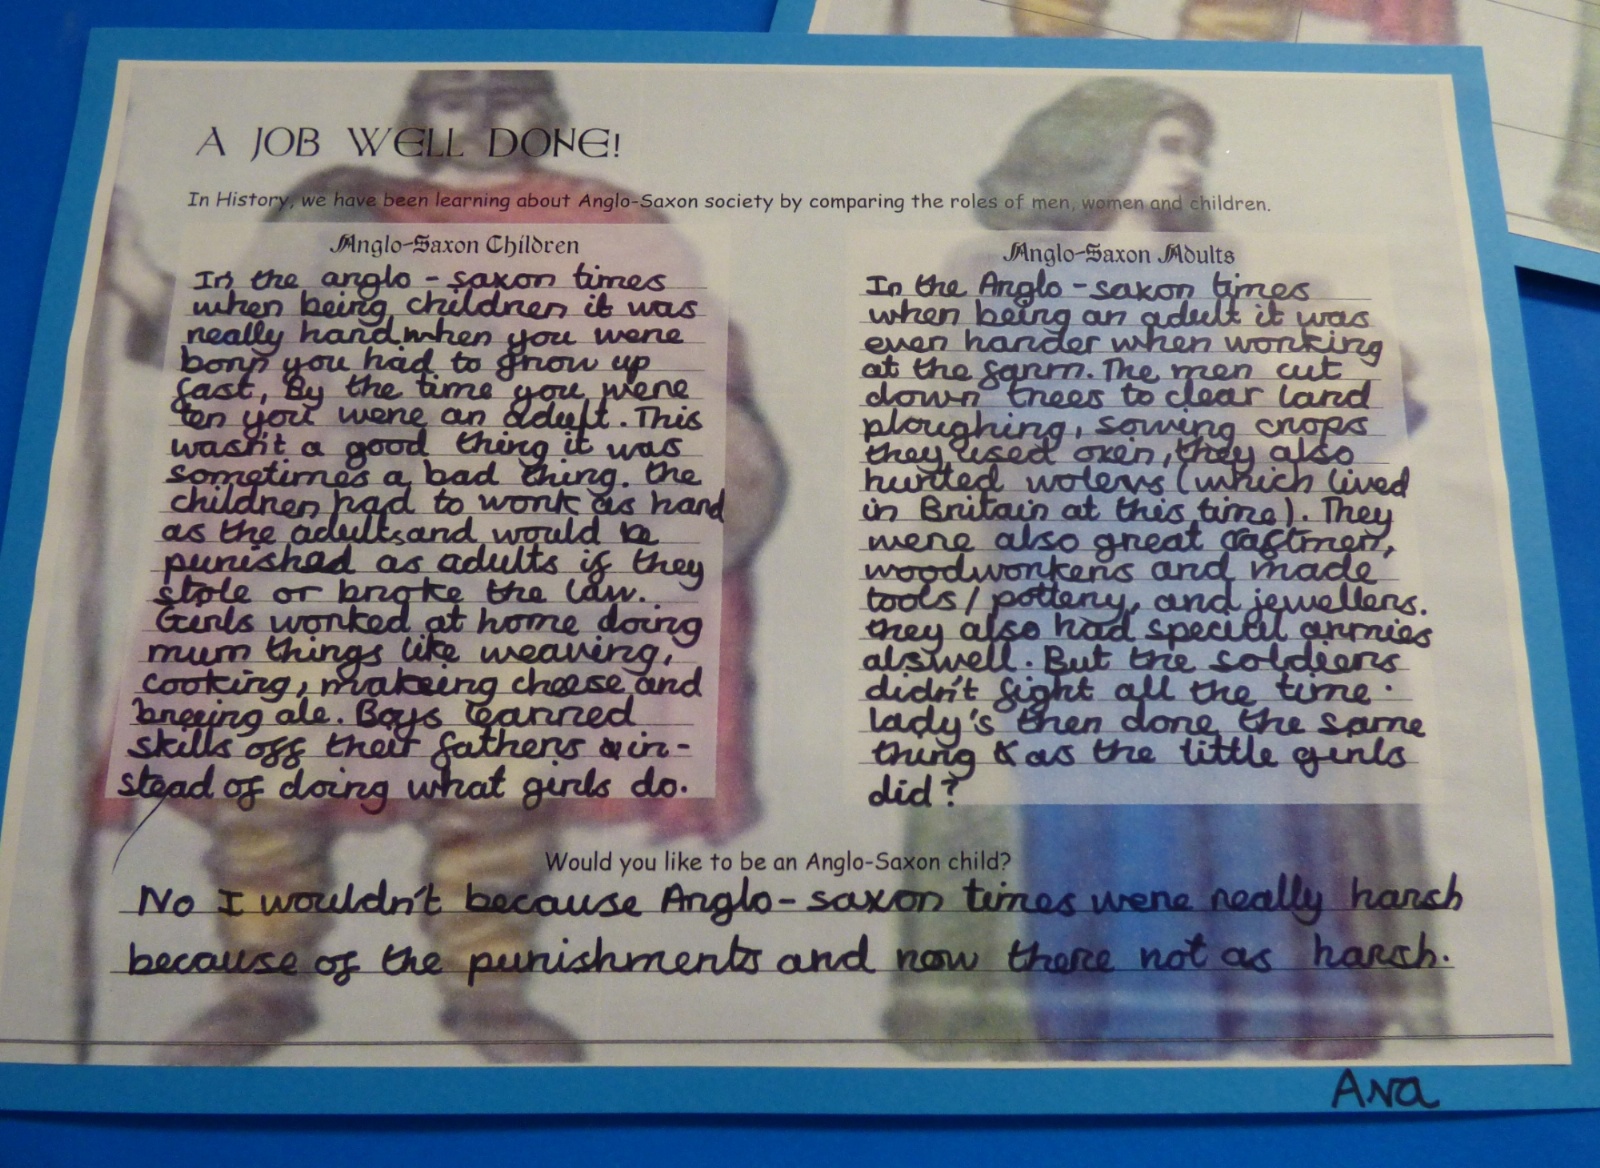 A JOB WELL DONE!
In History, we have been learning about Anglo-Saxon society by comparing the roles of men, women and children.
Anglo-Saxon Children
In the anglo - saxon times
when being children it was
really hard when you were
born you had to grow up
fast, By the time you were
ten you were an adult. This
wasn't a good thing it was
sometimes a bad thing. the
children had to work as hard
as the adults and would be
punished as adults if they
stole or broke the law.
Girls worked at home doing
mum things like weaving,
cooking, makeing cheese and
breeing ale. Boys learned
skills off their fathers in-
stead of doing what girls do.
Anglo-Saxon Adults
In the Anglo - saxon times
when being an adult it was
even harder when working
at the farm. The men cut
down trees to clear land
ploughing, sowing crops
they used oxen, they also
hunted wolevs (which lived
in Britain at this time). They
were also great craftmen,
woodworkers and made
tools / pottery, and jewellers.
they also had special armies
alswell. But the soldiers
didn't fight all the time.
lady's then done the same
thing as the little girls
did?
Would you like to be an Anglo-Saxon child?
No I wouldn't because Anglo-saxon times were really harsh
because of the punishments and now there not as harsh.
Ava